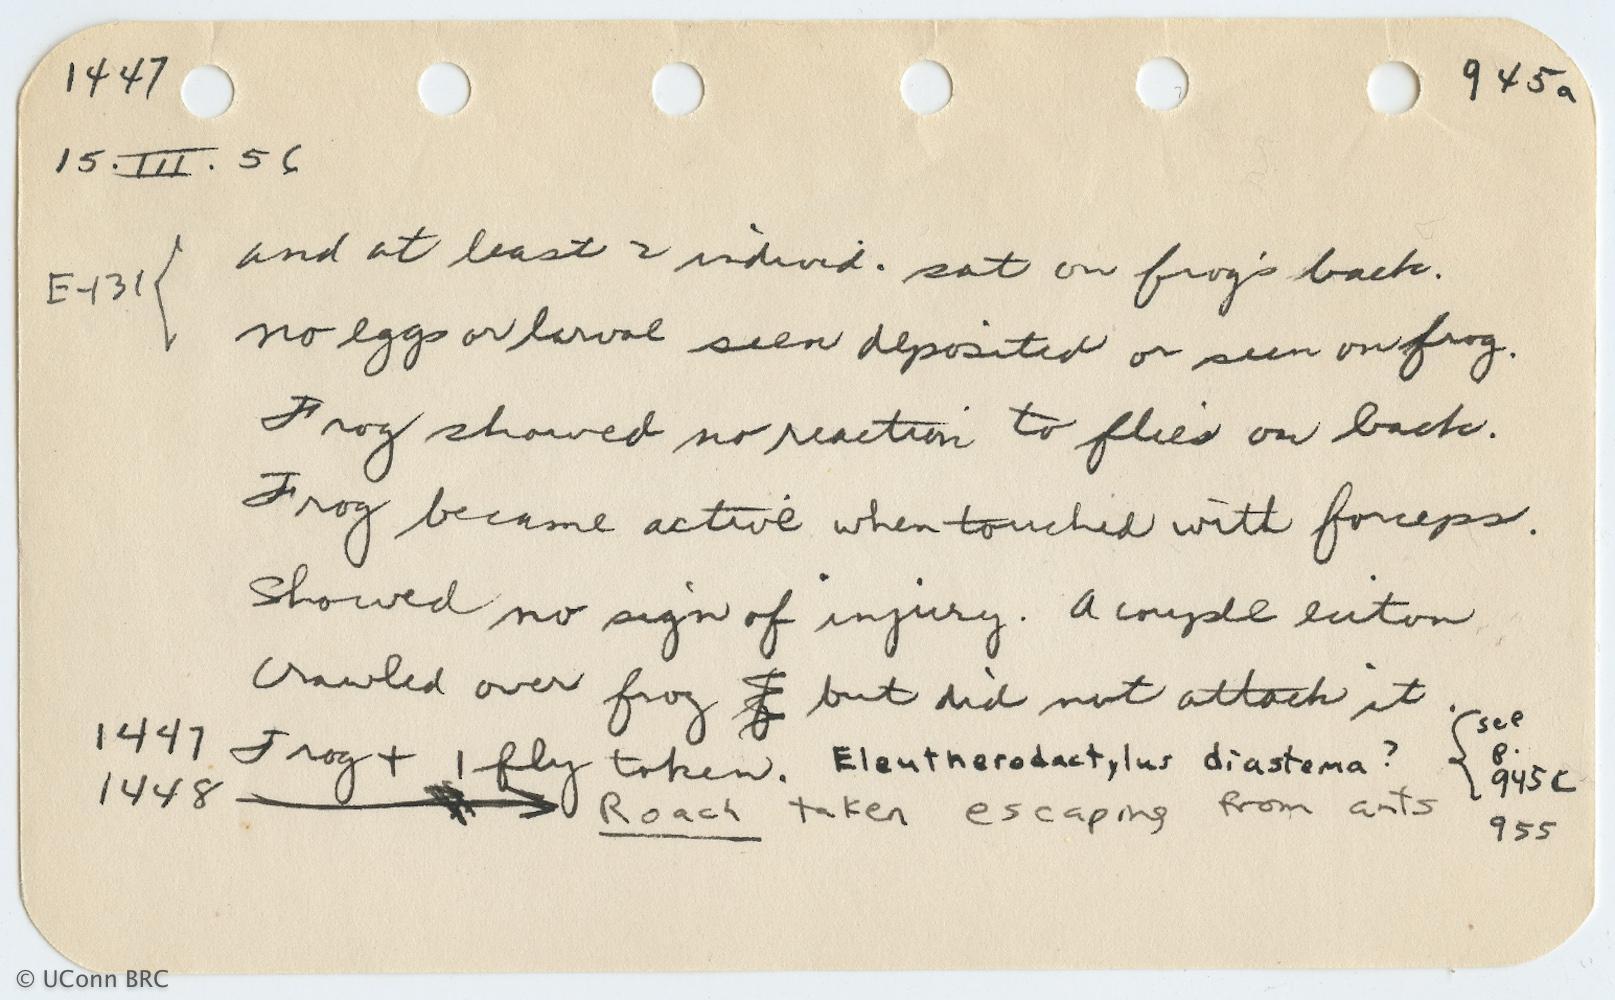 1447
945a
15.III.56
E-131 { and at least 2 individ. sat on frog's back.
no eggs or larvae seen deposited or seen on frog.
Frog showed no reaction to flies on back.
Frog became active when touched with forceps.
Showed no sign of injury. A couple eciton
crawled over frog but did not attack it.
1447 Frog + 1 fly taken. Eleutherodactylus diastema? { see
p.
945c
1448 → Roach taken escaping from ants
955
© UConn BRC